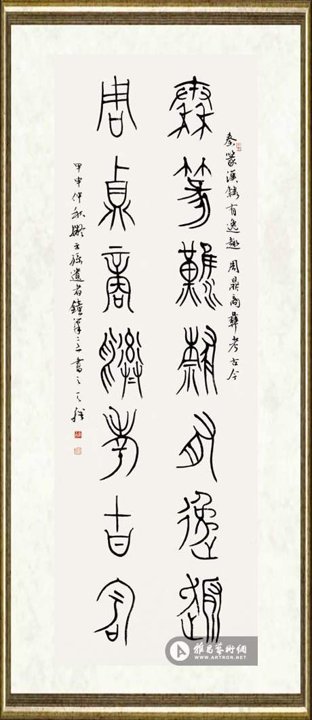 秦篆漢鐫有逸趣 周鼎商彝考古今
秦篆漢鐫有逸趣
周鼎商彝考古今
甲申仲秋 書之
雅昌藝術網
WWW.ARTRON.NET